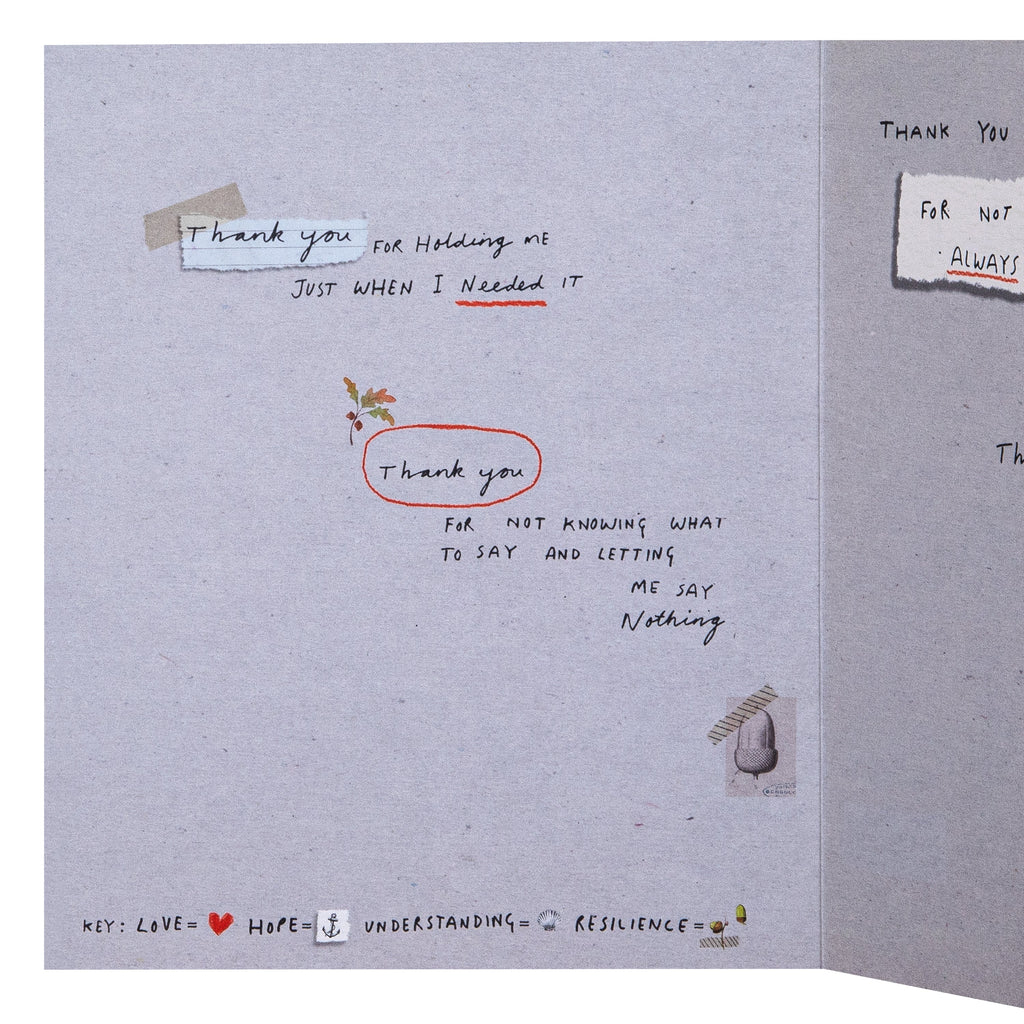 Thank you FOR Holding ME
JUST WHEN I Needed IT
Thank you
FOR NOT KNOWING WHAT
TO SAY AND LETTING
ME SAY
Nothing
KEY: LOVE= HOPE= UNDERSTANDING= RESILIENCE=
THANK YOU
FOR NOT
ALWAYS
Th